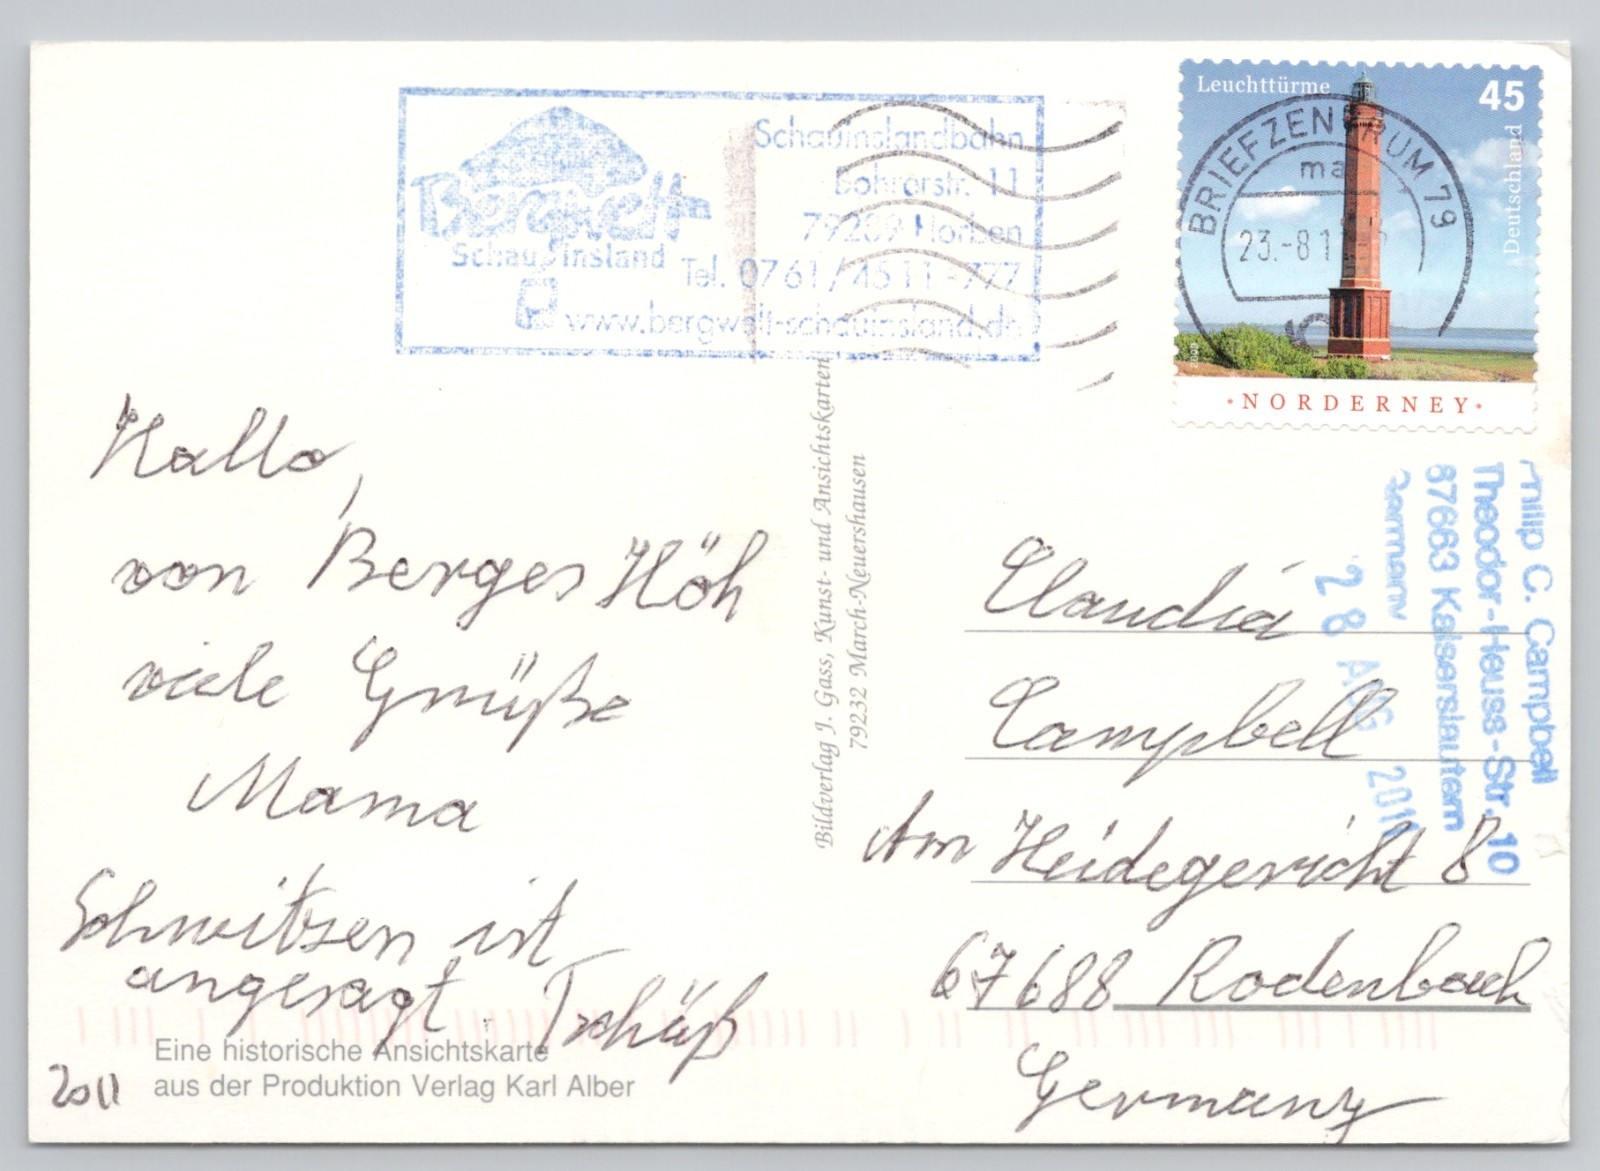 Bergwelt
Schauinsland
Schauinslandbahn
Bohrerstr. 11
79289 Horben
Tel. 0761/4511-777
www.bergwelt-schauinsland.de
Leuchttürme
45
Deutschland
2009
BRIEFZENTRUM 79
ma
23.-8.1
* NORDERNEY *
Hallo,
von Berges Höh
viele Grüße
Mama
Schwitzen ist
angesagt. Tschüß
Eine historische Ansichtskarte
aus der Produktion Verlag Karl Alber
2011
Bildverlag J. Gass, Kunst- und Ansichtskarten
79232 March-Neuershausen
Philip C. Campbell
Theodor-Heuss-Str. 10
67663 Kaiserslautern
Germany
28 AUG 201
Claudia
Campbell
Am Heidegericht 8
67688 Rodenbach
Germany